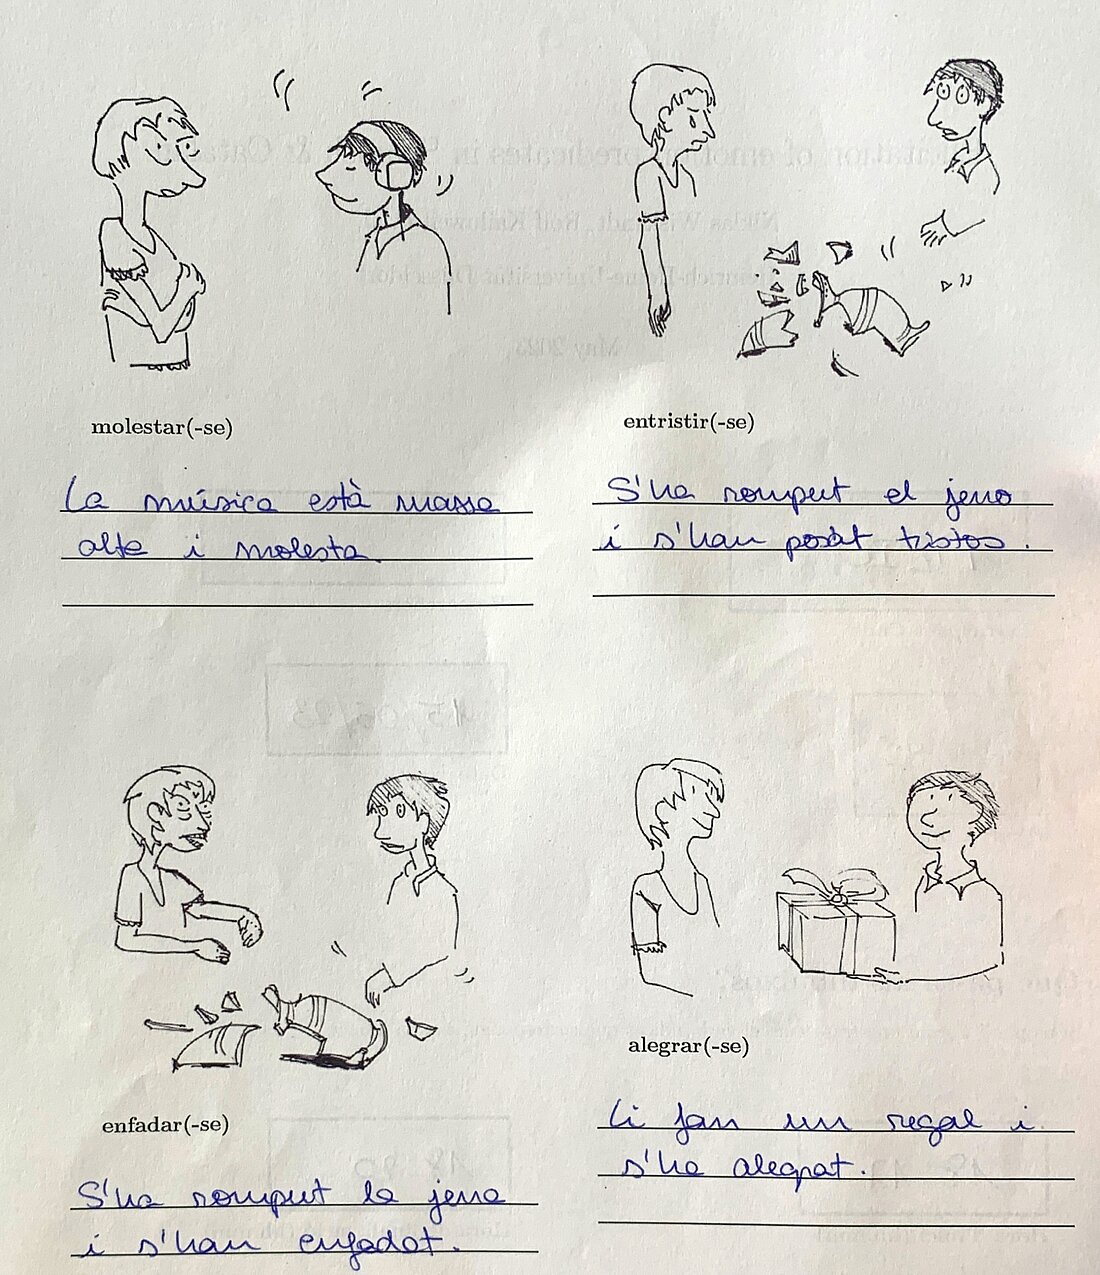 molestar(-se)
La música està massa
alta i molesta.
entristir(-se)
S'ha romput el jerro
i s'han posat tristos.
enfadar(-se)
S'ha romput la jerra
i s'han enfadat.
alegrar(-se)
Li fan un regal i
s'ha alegrat.